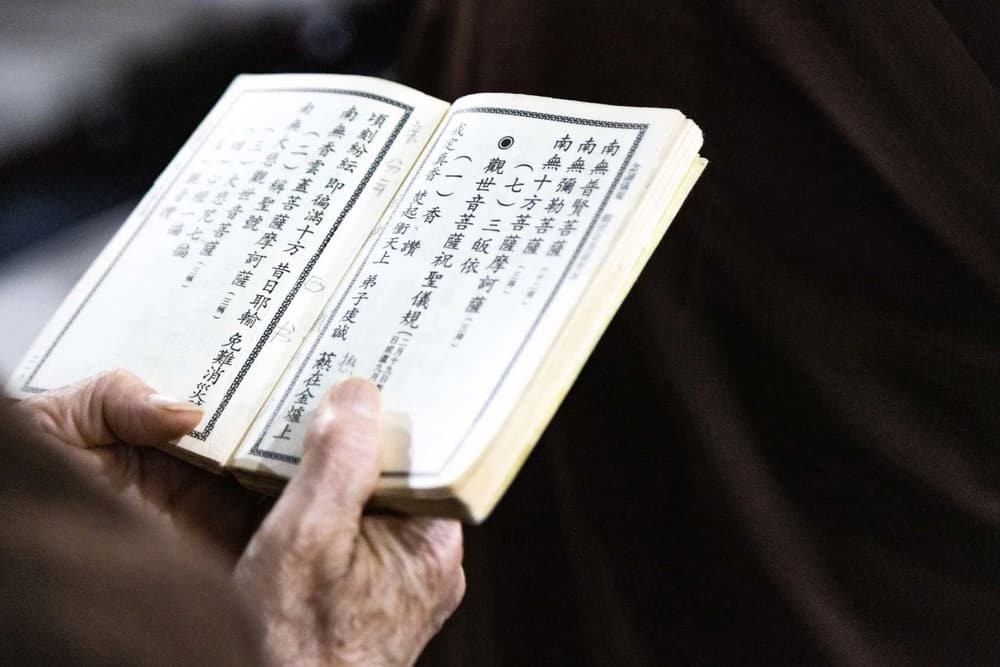 南無普賢菩薩
南無彌勒菩薩
南無十方菩薩摩訶薩(三稱)
(七)三皈依
觀世音菩薩祝聖儀規
(一)香讚
真香 焚起衝天上 弟子虔誠 爇在金爐上
頃刻紛紜 即徧滿十方 昔日耶輸 免難消災
南無香雲蓋菩薩摩訶薩(三稱)
(二)稱聖號
南無大悲觀世音菩薩(三稱)
(三)